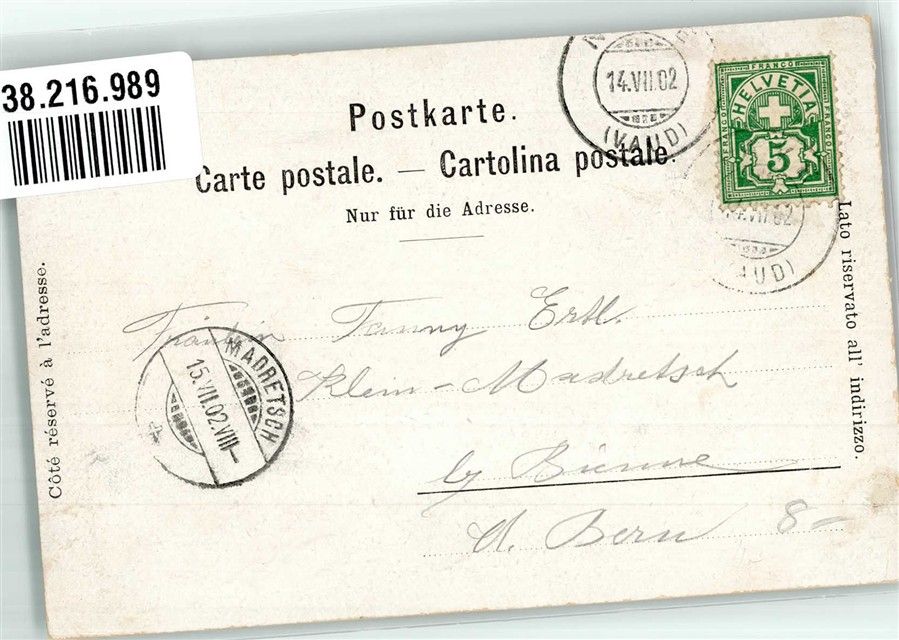 38.216.989
Postkarte.
Carte postale. — Cartolina postale.
Nur für die Adresse.
14.VII.02
(VAUD)
FRANCO
HELVETIA
FRANCO
FRANCO
5
.VII.02
AUD)
Côté réservé à l'adresse.
Lato riservato all' indirizzo.
Fräulein Fanny Ertl.
Klein-Madretsch
by Bienne
Bern 8-
MADRETSCH
15.VII.02.VIII-